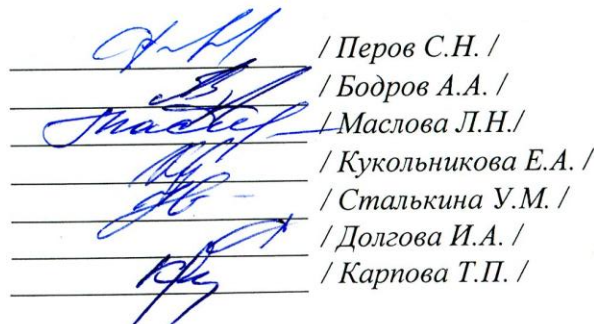 / Перов С.Н. /
/ Бодров А.А. /
/ Маслова Л.Н./
/ Кукольникова Е.А. /
/ Сталькина У.М. /
/ Долгова И.А. /
/ Карпова Т.П. /